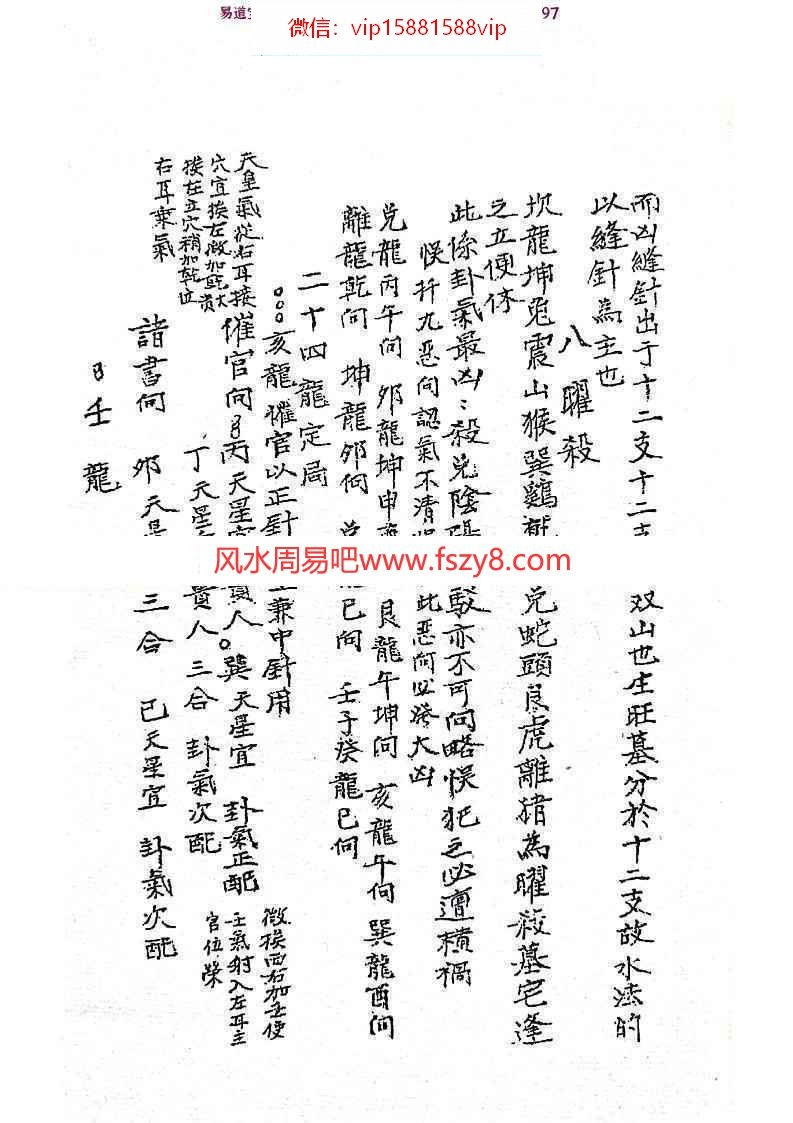 易道
97
微信：vip15881588vip
而凶縫針出于十二支十二支
双山也生旺墓分於十二支故水法的
以縫針為主也
八曜殺
坎龍坤兔震山猴巽鷄
兌蛇頭艮虎離猪為曜殺墓宅逢
之立便休
此係卦氣最凶：殺兌陰
駁亦不可向略悮犯之必遭横禍
悮扦九恶向認氣不清
此恶向必發大凶
兌龍丙午向 卯龍坤申
艮龍午坤向 亥龍午向 巽龍酉向
離龍乾向 坤龍卯向
龍巳向 壬子癸龍巳向
二十四龍定局
亥龍 催官以正針
兼中針用
催官向 丙天星
貴人。巽天星宜 卦氣正配
微挨西右加壬便
壬氣射入左耳主
官位榮
丁天星
貴人三合 卦氣次配
諸書向 卯天星
三合 巳天星宜 卦氣次配
壬龍
天皇氣從右耳接
穴宜挨左微加乾大貴
挨左立穴稍加乾位
右耳乘氣
风水周易吧www.fszy8.com